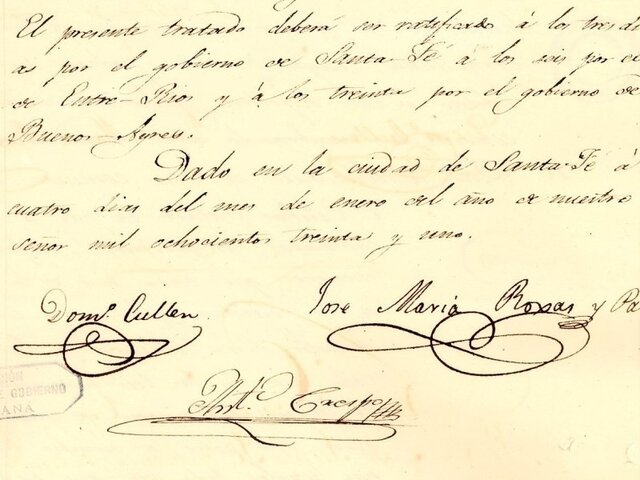 El presente tratado deberá ser ratificado á los tres di
as por el gobierno de Santa-Fé á los seis por el
de Entre-Rios y á los treinta por el gobierno de
Buenos-Ayres.
Dado en la ciudad de Santa-Fé á
cuatro dias del mes de enero del año de nuestro
señor mil ochocientos treinta y uno.
Domº. Cullen.
José Maria Roxas y Pa
Antº. Crespo
GOBIERNO
ANÁ